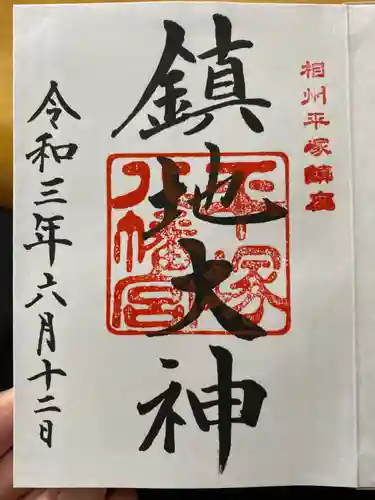 相州平塚鎮座
鎮地大神
平塚
八幡宮
令和三年六月十二日